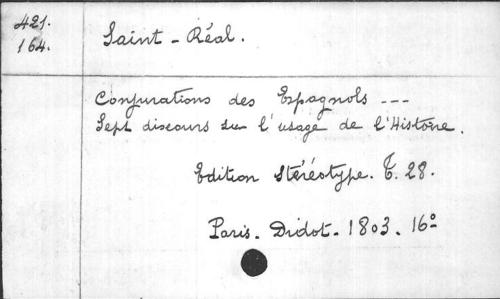 421.
164.
Saint-Réal.
Conjurations des Espagnols ---
Sept discours sur l'usage de l'Histoire.
Edition Stéréotype. T. 28.
Paris. Didot. 1803. 16°